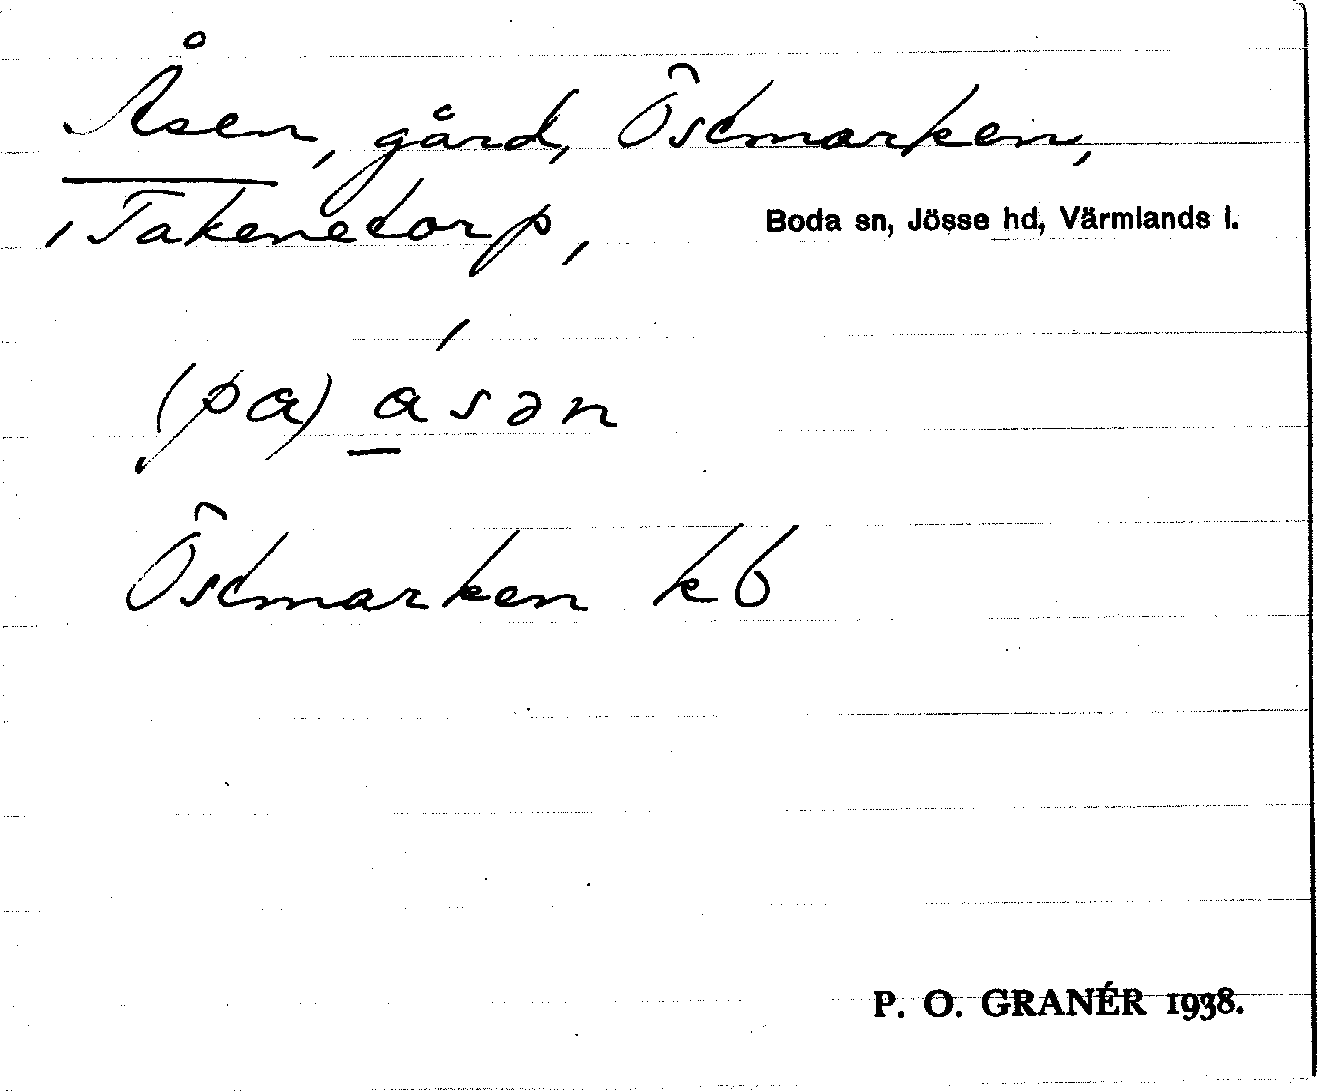 Åsen, gård, Östmarken,
Takenetorp,
Boda sn, Jösse hd, Värmlands l.
(pa) ásən
Östmarken kb
P. O. GRANÉR 1938.